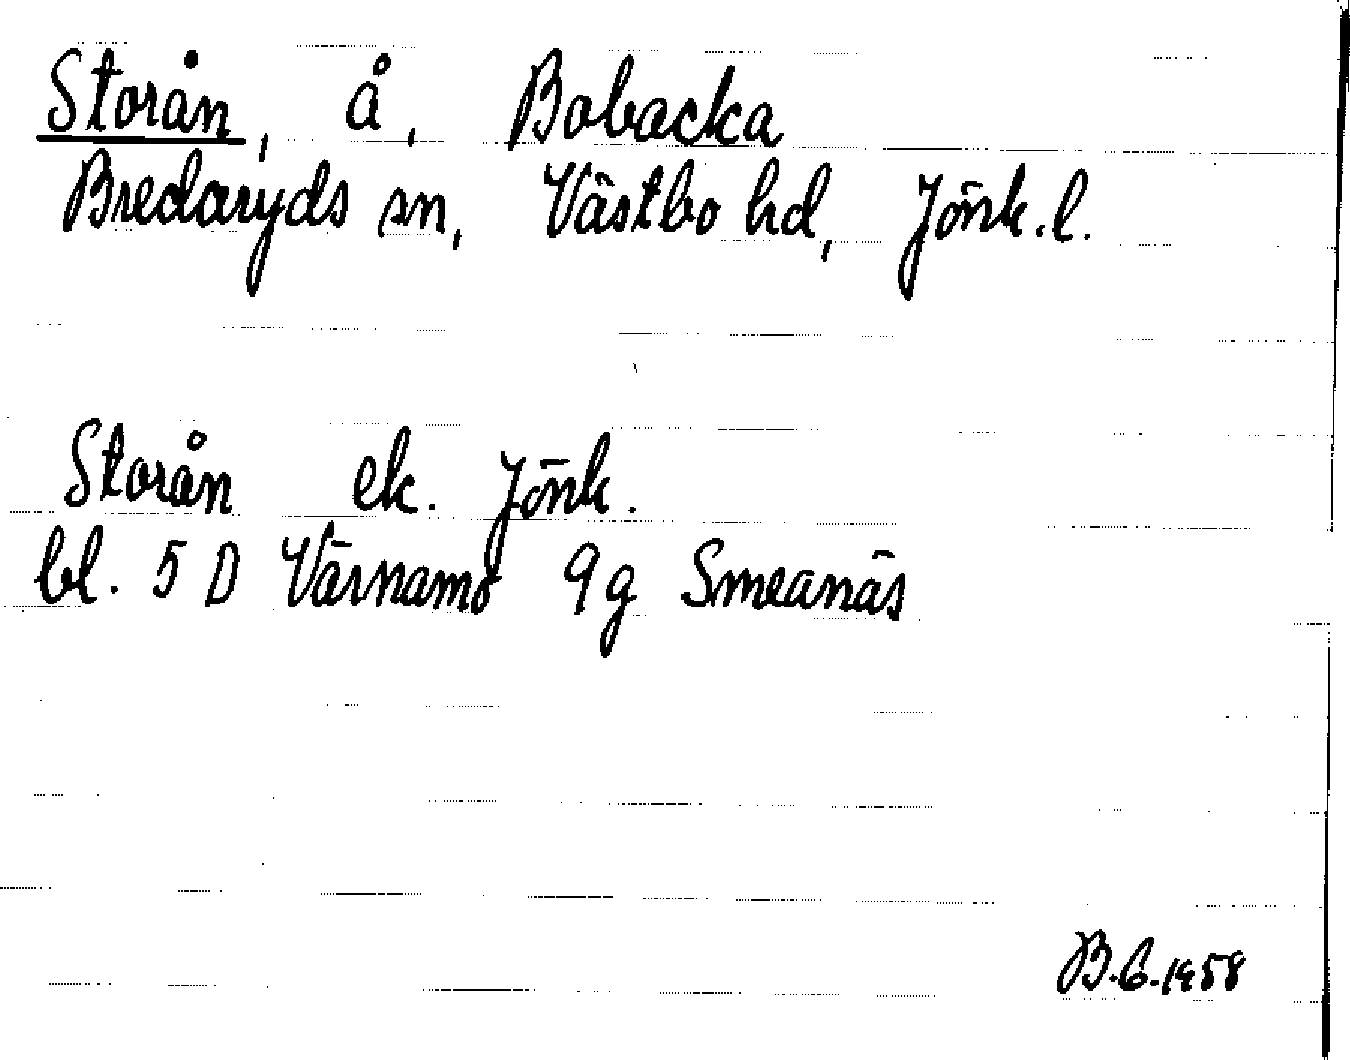 Storån, å, Bobacka
Bredaryds sn, Västbo hd, Jönk.l.
Storån ek. Jönk.
bl. 5 D Värnamo 9g Smeanäs
B.G.1958